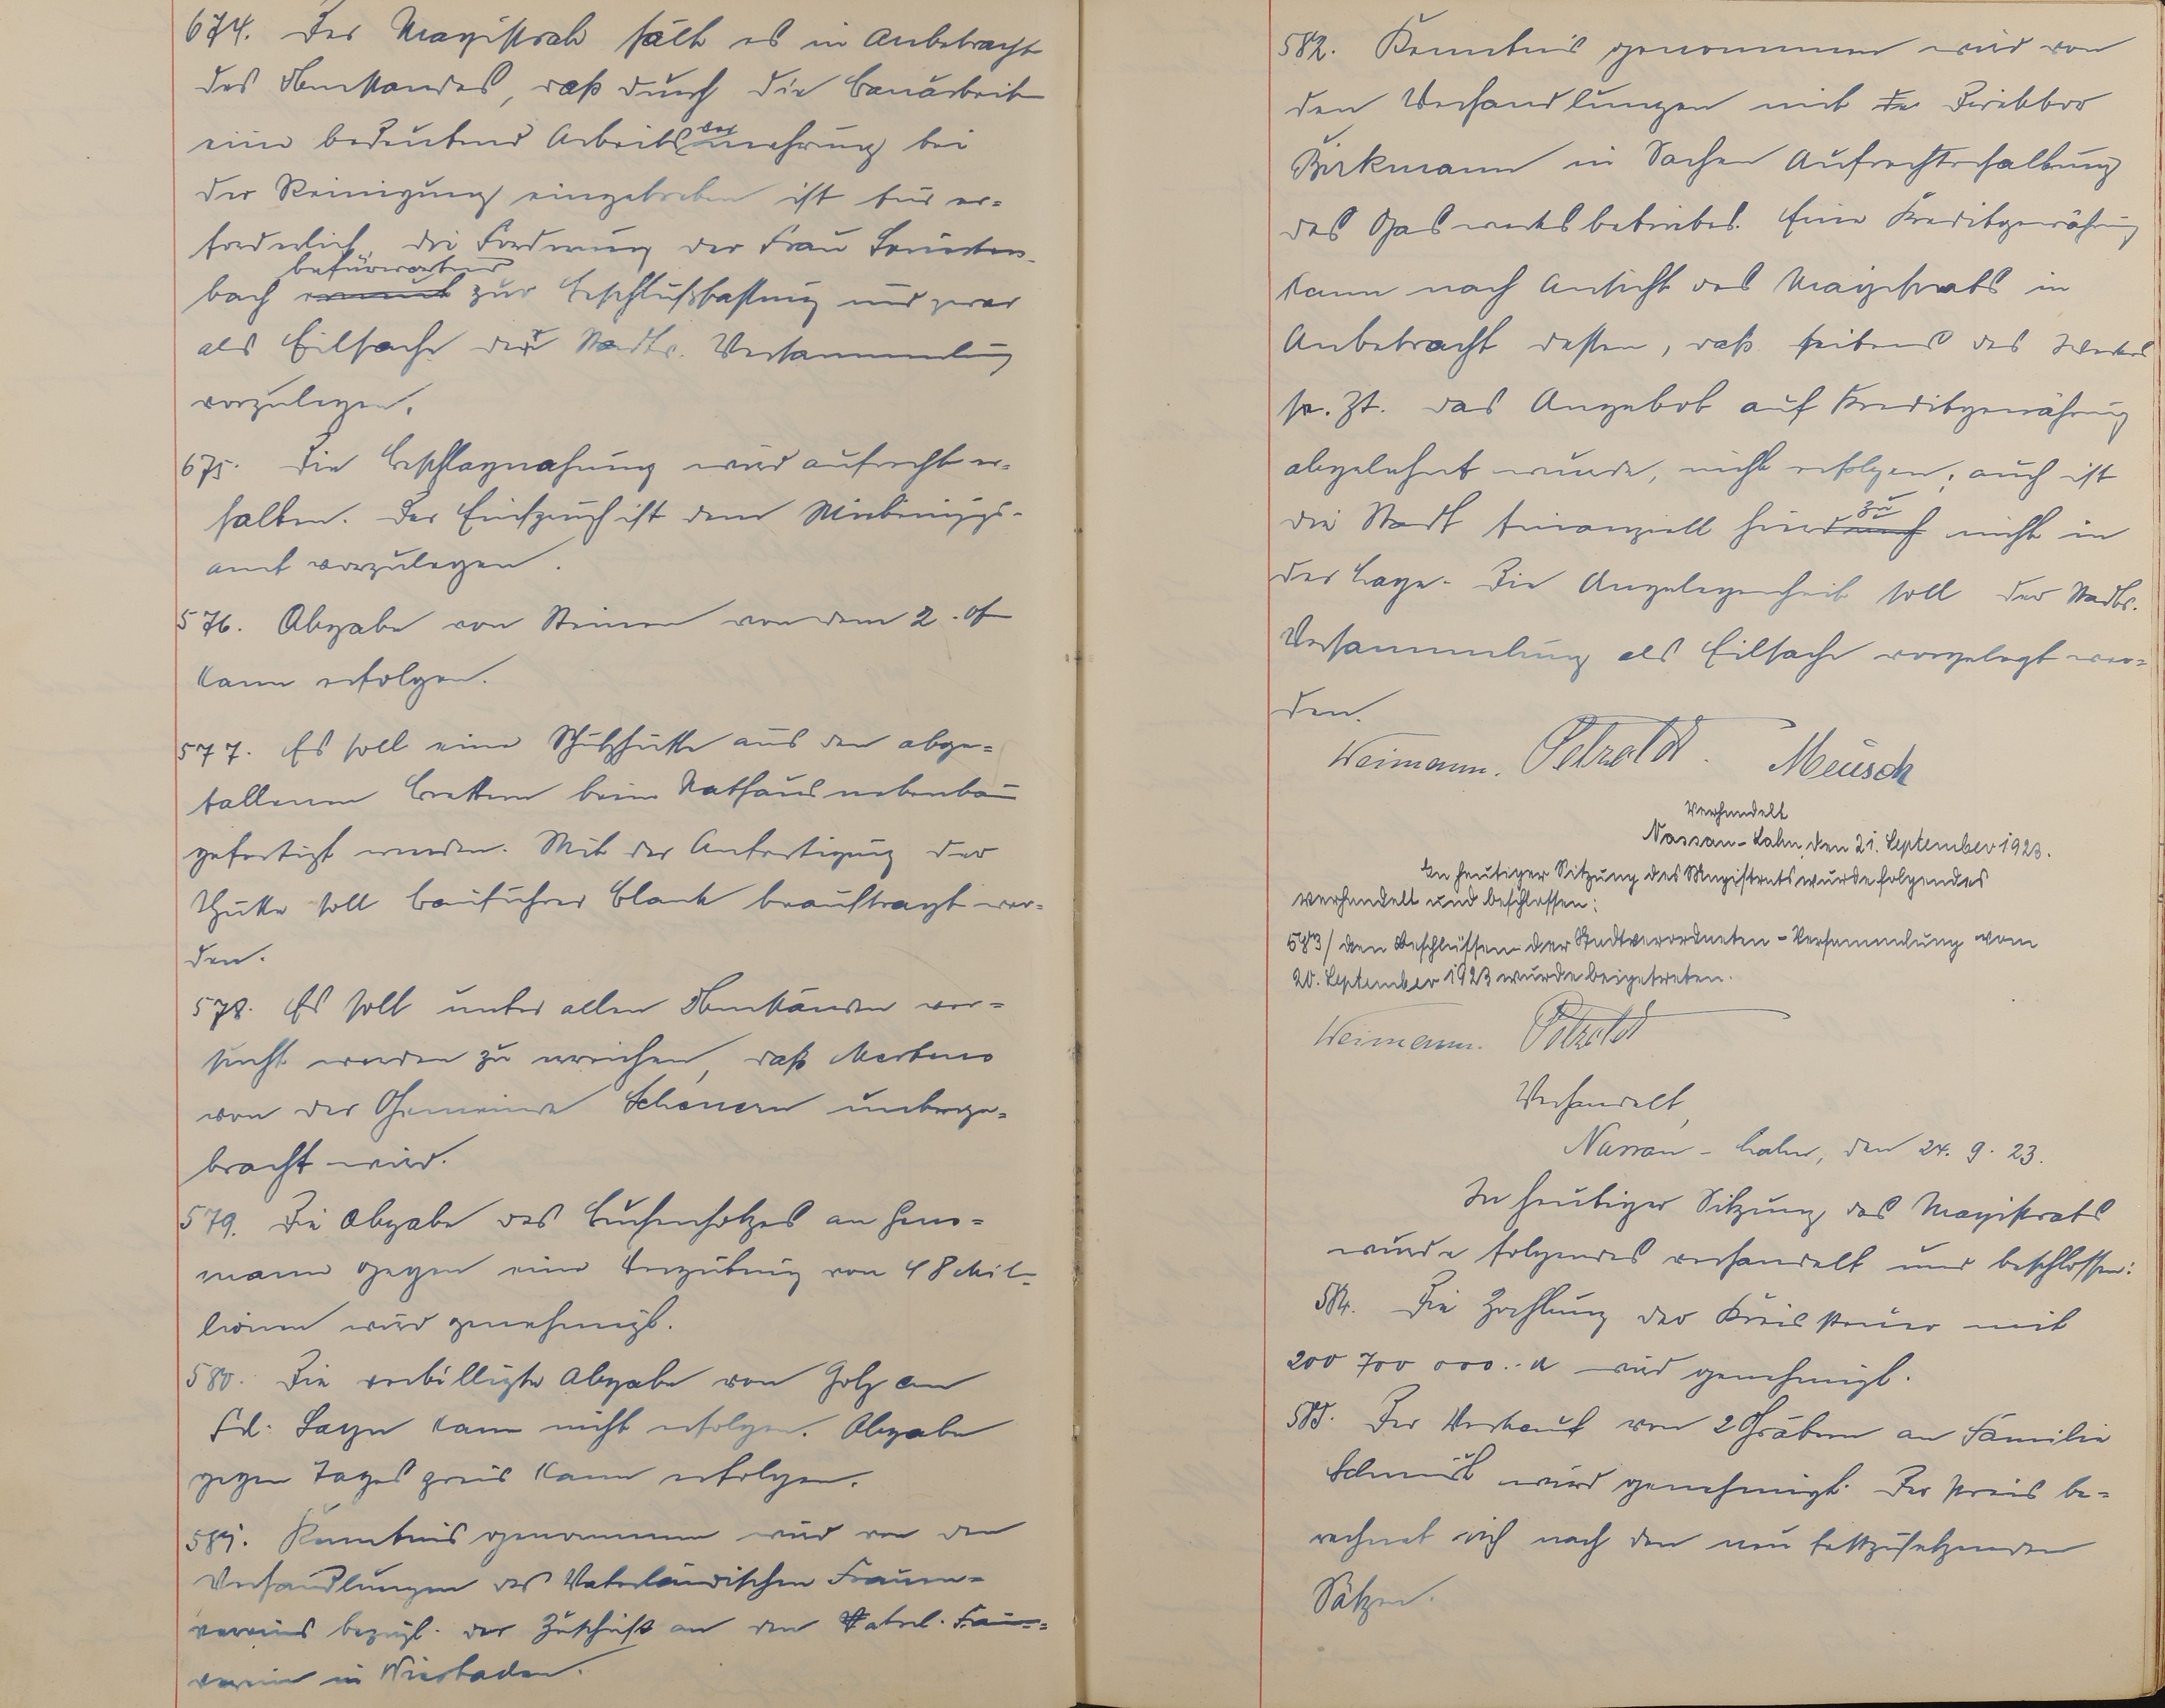 674. Der Magistrat hält es in Anbetracht
des Umstandes, daß durch die Bauarbeit
eine bedeutend Arbeitsvermehrung bei
der Reinigung eingetreten ist für er-
forderlich, die Forderung der Frau
bach befürwortend zur Beschlußfassung und zwar
als Eilsache der Stadtv. Versammlung
vorzulegen.
675. Die Beschlagnahmung wird aufrecht er-
halten. Der Einspruch ist dem Mieteinigungs-
amt vorzulegen.
576. Abgabe von Steinen von dem 2.
kann erfolgen.
577. Es soll eine Schutzhütte aus den abge-
fallenen Brettern beim Rathausnebenbau
gefertigt werden. Mit der Anfertigung der
Hütte soll Bauführer Blank beauftragt wer-
den.
578. Es soll unter allen Umständen ver-
sucht werden zu erreichen, daß Mertens
von der Gemeinde Scheuern unterge-
bracht wird.
579. Die Abgabe des Buchenholzes an Herr-
mann gegen eine Vergütung von 48 Mil-
lionen wird genehmigt.
580. Die verbilligte Abgabe von Holz an
Frl. Sayn kann nicht erfolgen. Abgabe
gegen Tagespreis kann erfolgen.
581. Kenntnis genommen wird von den
Verhandlungen des Vaterländischen Frauen-
vereins bezügl. der Zuschrift an den Vaterl. Frau-
verein in Wiesbaden.
582. Kenntnis genommen wird von
den Verhandlungen mit De Direktor
Birkmann in Sachen Aufrechterhaltung
des Gaswerksbetriebes. Eine Kreditgewährung
kann nach Ansicht des Magistrats in
Anbetracht dessen, daß seitens des Werkes
sr. Zt. das Angebot auf Kreditgewährung
abgelehnt wurde, nicht erfolgen; auch ist
die Stadt finanziell hierzu nicht in
der Lage. Die Angelegenheit soll der Stadtv.
Versammlung als Eilsache vorgelegt wer-
den.
Weimann. Petzoldt. Meusch
Verhandelt
Nassau-Lahn, den 21. September 1923.
In heutiger Sitzung des Magistrats wurde folgendes
verhandelt und beschlossen:
583/ Den Beschlüssen der Stadtverordneten-Versammlung vom
20. September 1923 wurde beigetreten.
Weimann. Petzoldt
Verhandelt,
Nassau-Lahn, den 24. 9. 23.
In heutiger Sitzung des Magistrats
wurde folgendes verhandelt und beschlossen:
584. Die Zahlung der Kreissteuer mit
200 700 000.- M wird genehmigt.
585. Der Verkauf von 2 Gräbern an Familie
Schmidt wird genehmigt. Der Preis be-
rechnet sich nach den neu festzusetzenden
Sätzen.